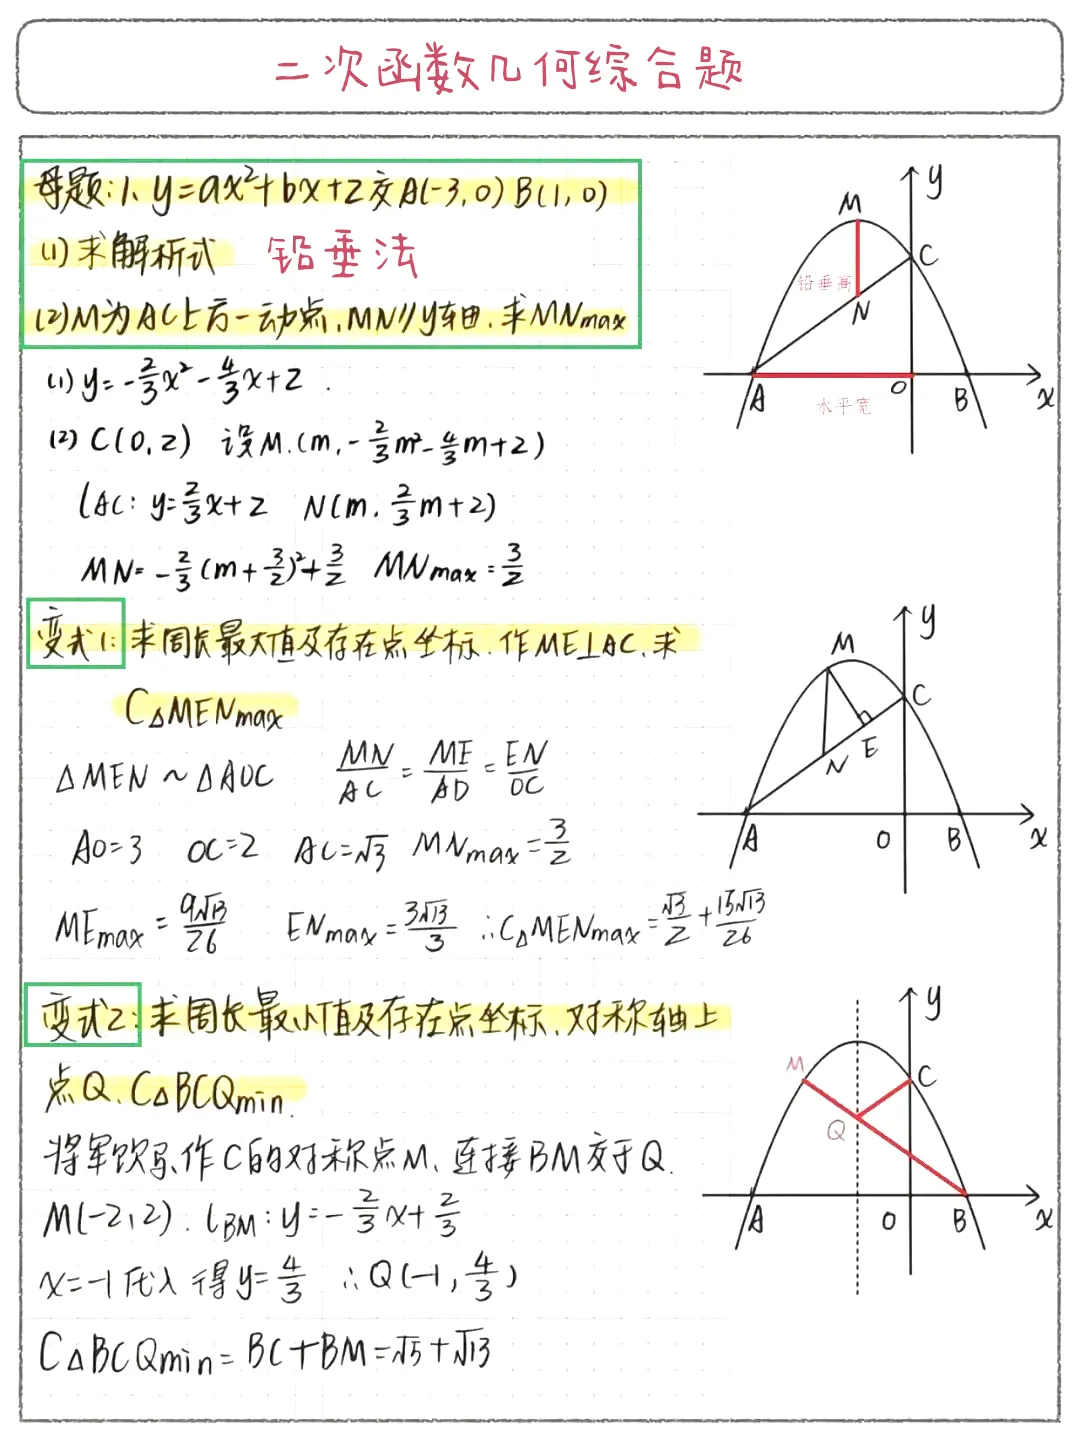 二次函数几何综合题
母题:1、y=ax²+bx+2交A(-3,0)B(1,0)
(1)求解析式 铅垂法
(2)M为AC上方一动点,MN∥y轴,求MNmax
(1) y=-2/3x²-4/3x+2.
(2) C(0,2) 设M.(m,-2/3m²-4/3m+2)
lAC: y=2/3x+2 N(m,2/3m+2)
MN=-2/3(m+3/2)²+3/2 MNmax=3/2
y
M
C
铅垂高
N
A
水平宽
O
B
x
变式1:求周长最大值及存在点坐标.作ME⊥AC,求
C△MENmax
△MEN~△AOC MN/AC=ME/AO=EN/OC
AO=3 OC=2 AC=√3 MNmax=3/2
MEmax=9√13/26 ENmax=3√13/3 ∴C△MENmax=√3/2+15√13/26
y
M
C
N
E
A
O
B
x
变式2:求周长最小值及存在点坐标,对称轴上
点Q、C△BCQmin.
将军饮马,作C的对称点M,连接BM交于Q.
M(-2,2). lBM:y=-2/3x+2/3
x=-1代入得y=4/3 ∴Q(-1,4/3)
C△BCQmin=BC+BM=√5+√13
y
M
C
Q
A
O
B
x